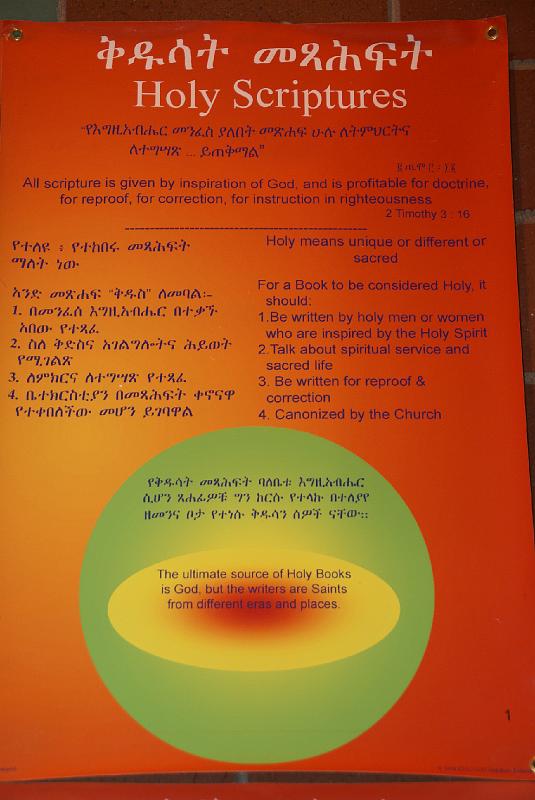 ቅዱሳት መጻሕፍት
Holy Scriptures
"የእግዚአብሔር መንፈስ ያለበት መጽሐፍ ሁሉ ለትምህርትና
ለተግሣጽ ... ይጠቅማል"
፪ ጢሞ ፫ : ፲፮
All scripture is given by inspiration of God, and is profitable for doctrine,
for reproof, for correction, for instruction in righteousness
2 Timothy 3 : 16
የተለዩ ፥ የተከበሩ መጻሕፍት
ማለት ነው
አንድ መጽሐፍ "ቅዱስ" ለመባል፦
1. በመንፈሰ እግዚአብሔር በተቃኙ
አበው የተጻፈ
2. ስለ ቅድስና አገልግሎትና ሕይወት
የሚገልጽ
3. ለምክርና ለተግሣጽ የተጻፈ
4. ቤተክርስቲያን በመጻሕፍት ቀኖናዋ
የተቀበለችው መሆን ይገባዋል
Holy means unique or different or
sacred
For a Book to be considered Holy, it
should:
1.Be written by holy men or women
who are inspired by the Holy Spirit
2.Talk about spiritual service and
sacred life
3. Be written for reproof &
correction
4. Canonized by the Church
የቅዱሳት መጻሕፍት ባለቤቱ እግዚአብሔር
ሲሆን ጸሐፊዎቹ ግን ከርሱ የተላኩ በተለያየ
ዘመንና ቦታ የተነሱ ቅዱሳን ሰዎች ናቸው።
The ultimate source of Holy Books
is God, but the writers are Saints
from different eras and places.
1